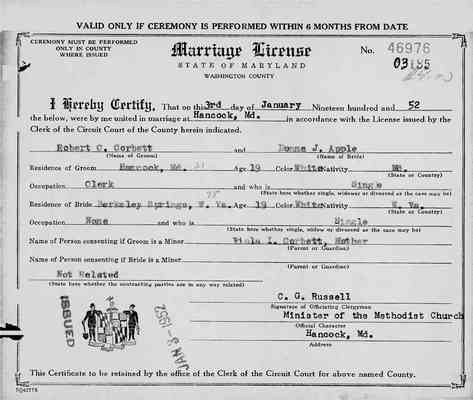 VALID ONLY IF CEREMONY IS PERFORMED WITHIN 6 MONTHS FROM DATE
CEREMONY MUST BE PERFORMED
ONLY IN COUNTY
WHERE ISSUED
Marriage License
STATE OF MARYLAND
WASHINGTON COUNTY
No. 46976
03185
I Hereby Certify, That on this 3rd day of January Nineteen hundred and 52
the below, were by me united in marriage at Hancock, Md. in accordance with the License issued by the
Clerk of the Circuit Court of the County herein indicated.
Robert C. Corbett and Donna J. Apple
(Name of Groom) (Name of Bride)
Residence of Groom Hancock, Md. Age 19 Color White Nativity Md.
(State or Country)
Occupation Clerk and who is Single
(State here whether single, widower or divorced as the case may be)
Residence of Bride Berkeley Springs, W. Va. Age 19 Color White Nativity W. Va.
(State or Country)
Occupation None and who is Single
(State here whether single, widow or divorced as the case may be)
Name of Person consenting if Groom is a Minor Viola I. Corbett, Mother
(Parent or Guardian)
Name of Person consenting if Bride is a Minor
(Parent or Guardian)
Not Related
(State here whether the contracting parties are in any way related)
C. G. Russell
Signature of Officiating Clergyman
Minister of the Methodist Church
Official Character
Hancock, Md.
Address
ISSUED
JAN 3-1952
This Certificate to be retained by the office of the Clerk of the Circuit Court for above named County.